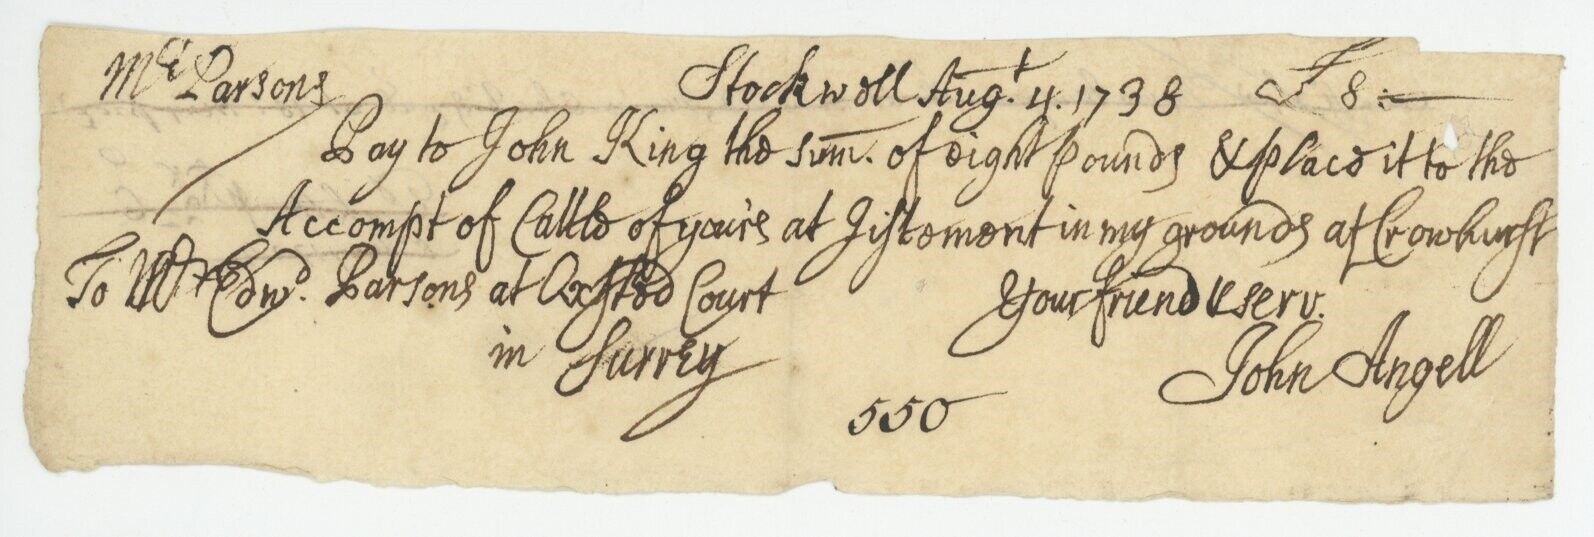 Mr. Parsons Stockwell Augt. 4. 1738 £ 8:—
Pay to John King the sum. of eight pounds & place it to the
Accompt of Cattle of yours at Jistement in my grounds at Crowhurst
To Mr Edwd. Parsons at Oxsted Court Your friend & serv.
in Surrey John Angell
550